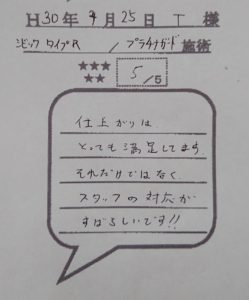 H30年9月25日 T 様
シビック タイプR / プラチナガード 施術
★★★
★★
5/5
仕上がりは
とっても満足してます
それだけではなく
スタッフの対応が
すばらしいです!!